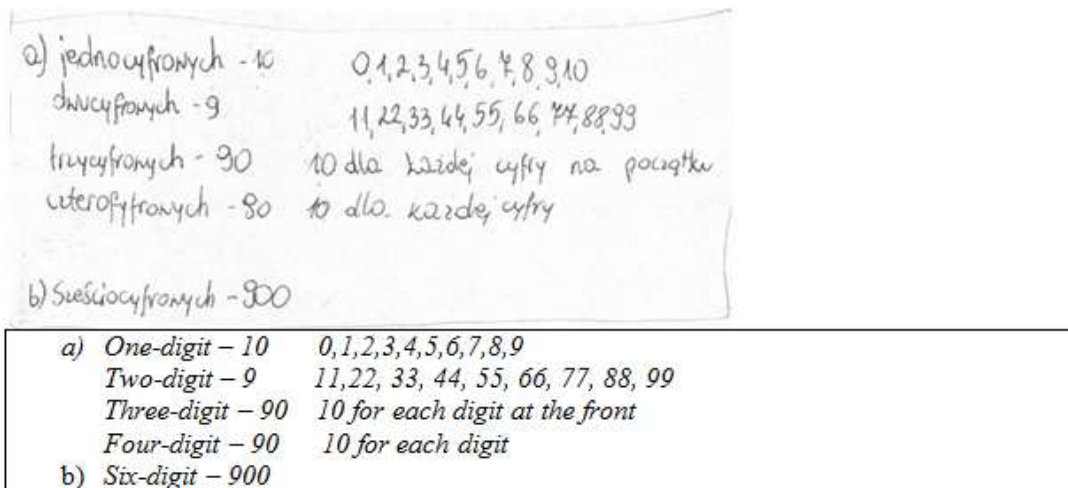 a) jednocyfrowych - 10 0,1,2,3,4,5,6,7,8,9,10
dwucyfrowych - 9 11,22,33,44,55,66,77,88,99
trzycyfrowych - 90 10 dla każdej cyfry na początku
czterocyfrowych - 90 10 dla każdej cyfry
b) Sześciocyfrowych - 900
a) One-digit – 10 0,1,2,3,4,5,6,7,8,9
Two-digit – 9 11,22, 33, 44, 55, 66, 77, 88, 99
Three-digit – 90 10 for each digit at the front
Four-digit – 90 10 for each digit
b) Six-digit – 900